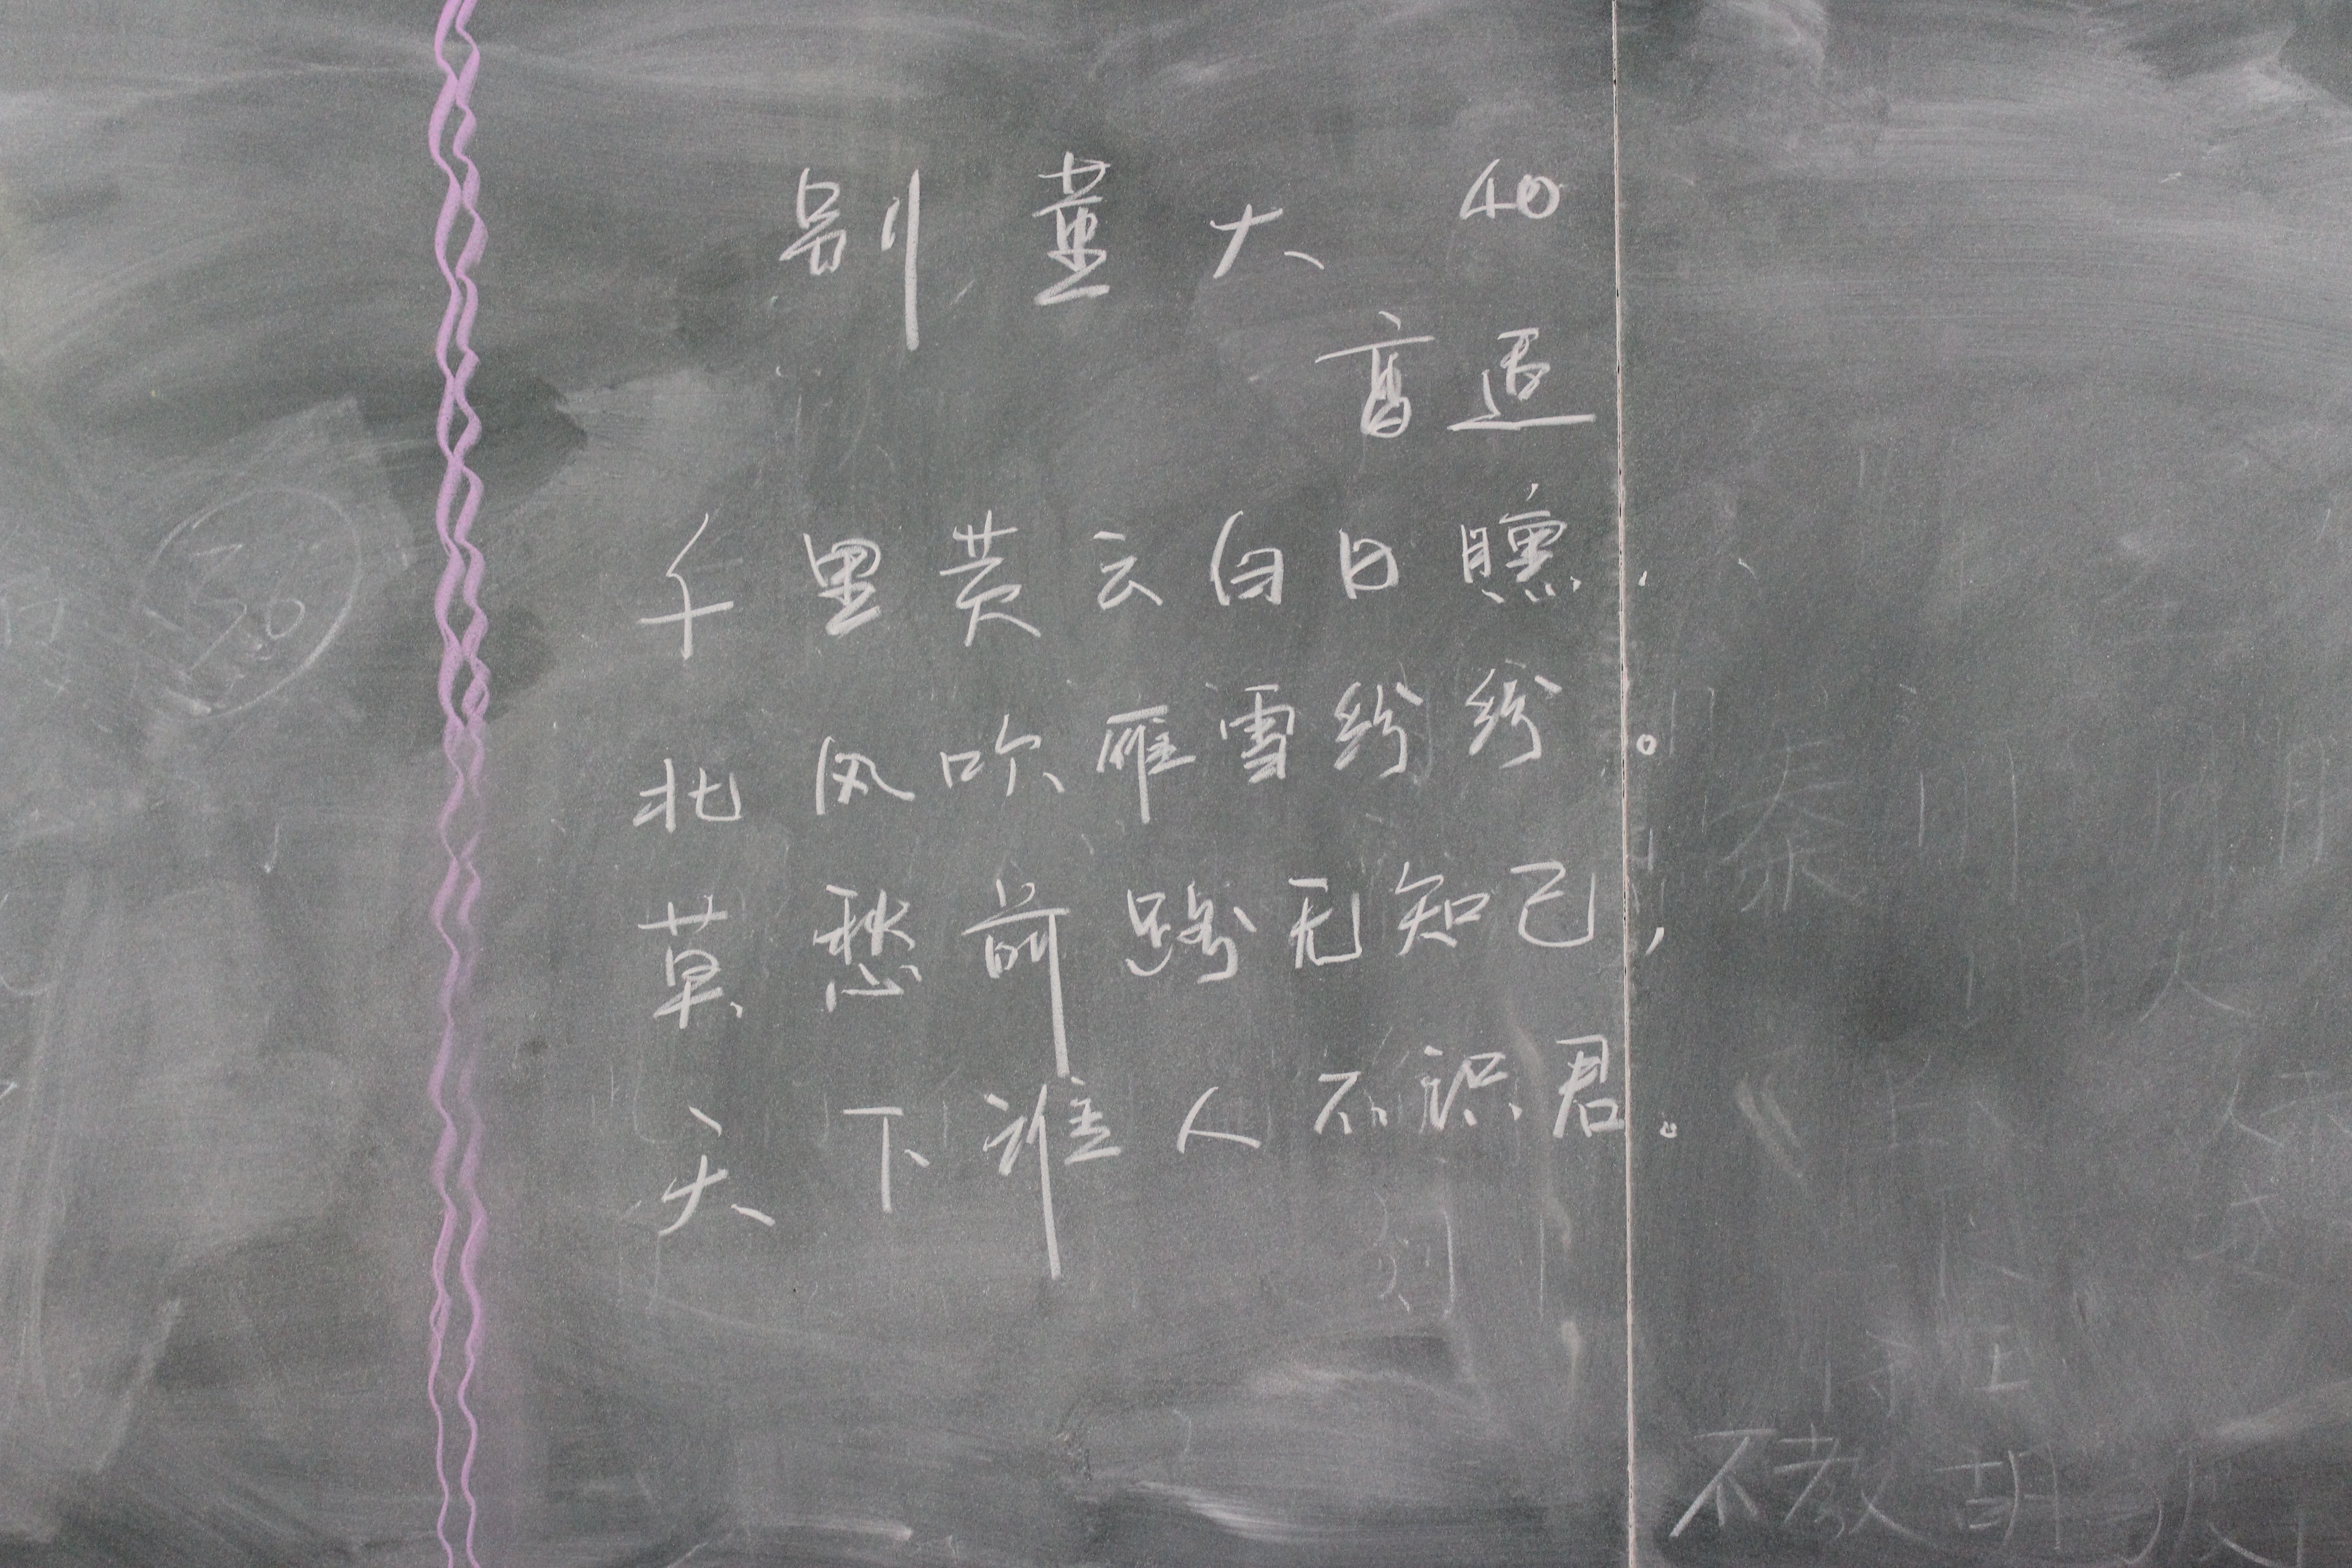 别董大 40
高适
千里黄云白日曛，
北风吹雁雪纷纷。
莫愁前路无知己，
天下谁人不识君。
36
秦
不教胡